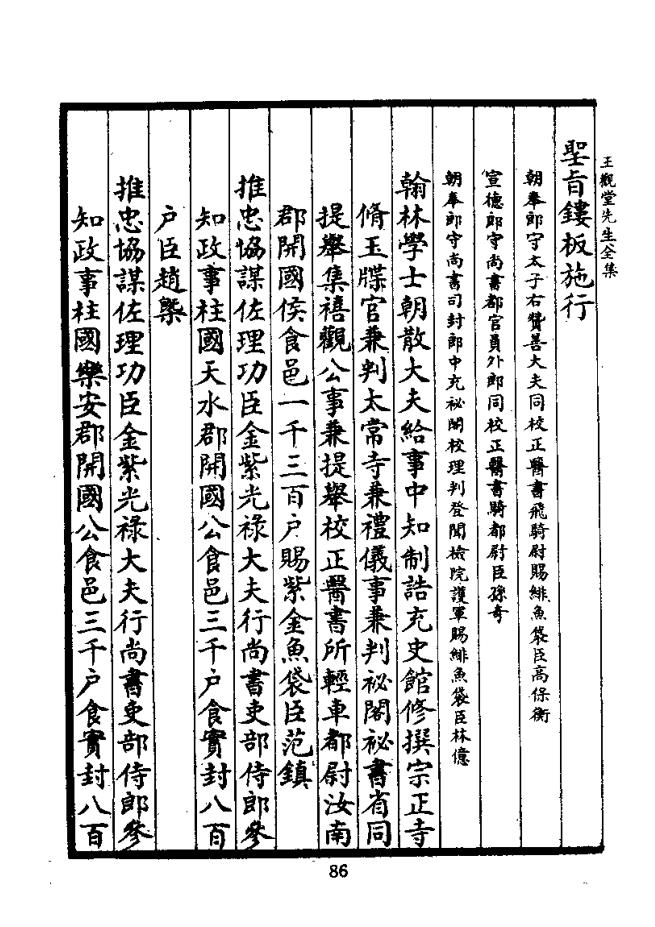 王觀堂先生全集
聖旨鏤板施行
朝奉郎守太子右贊善大夫同校正醫書飛騎尉賜緋魚袋臣高保衡
宣德郎守尚書都官員外郎同校正醫書騎都尉臣孫奇
朝奉郎守尚書司封郎中充祕閣校理判登聞檢院護軍賜緋魚袋臣林億
翰林學士朝散大夫給事中知制誥充史館修撰宗正寺
脩玉牒官兼判太常寺兼禮儀事兼判祕閣祕書省同
提舉集禧觀公事兼提舉校正醫書所輕車都尉汝南
郡開國侯食邑一千三百户賜紫金魚袋臣范鎮
推忠協謀佐理功臣金紫光祿大夫行尚書吏部侍郎參
知政事柱國天水郡開國公食邑三千户食實封八百
户臣趙槩
推忠協謀佐理功臣金紫光祿大夫行尚書吏部侍郎參
知政事柱國樂安郡開國公食邑三千户食實封八百
86